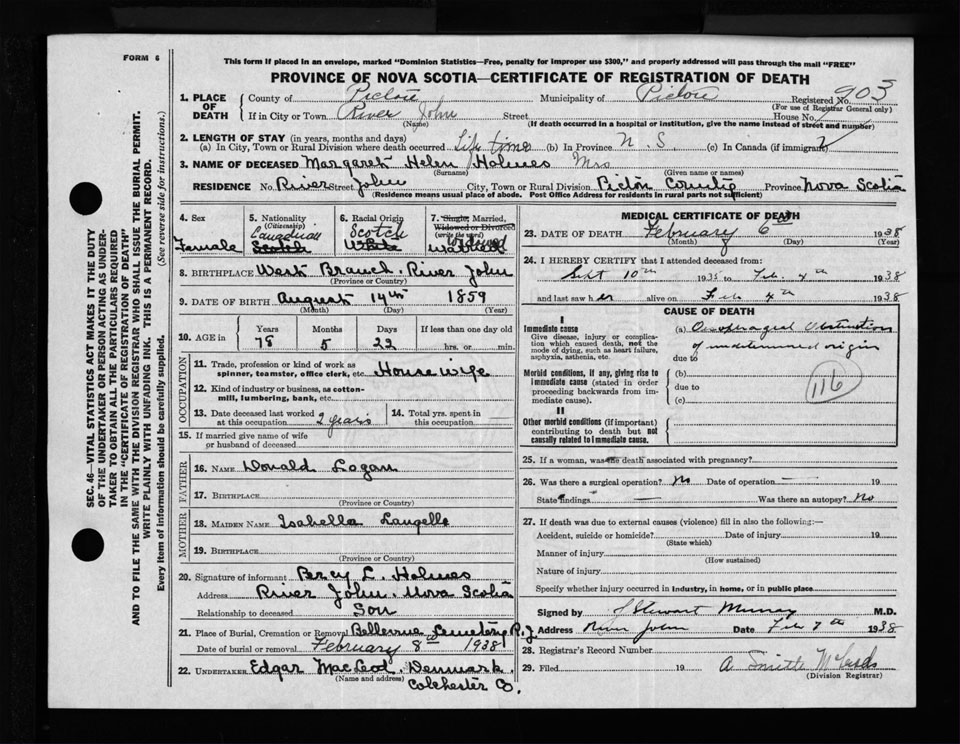 FORM 6
This form if placed in an envelope, marked "Dominion Statistics—Free, penalty for improper use $300," and properly addressed will pass through the mail "FREE"
PROVINCE OF NOVA SCOTIA—CERTIFICATE OF REGISTRATION OF DEATH
SEC. 46—VITAL STATISTICS ACT MAKES IT THE DUTY
OF THE UNDERTAKER OR PERSON ACTING AS UNDER-
TAKER TO OBTAIN ALL THE PARTICULARS REQUIRED
IN THE "CERTIFICATE OF REGISTRATION OF DEATH"
AND TO FILE THE SAME WITH THE DIVISION REGISTRAR WHO SHALL ISSUE THE BURIAL PERMIT.
WRITE PLAINLY WITH UNFADING INK. THIS IS A PERMANENT RECORD.
Every item of information should be carefully supplied. (See reverse side for instructions.)
1. PLACE OF DEATH County of Pictou Municipality of Pictou Registered No. 903
(For use of Registrar General only)
If in City or Town River John Street House No.
(Name) (If death occurred in a hospital or institution, give the name instead of street and number)
2. LENGTH OF STAY (in years, months and days)
(a) In City, Town or Rural Division where death occurred Life time (b) In Province N.S. (c) In Canada (if immigrant)
3. NAME OF DECEASED Margaret Helen Holmes Mrs
(Surname) (Given name or names)
RESIDENCE No. River Street John City, Town or Rural Division Pictou County Province Nova Scotia
(Residence means usual place of abode. Post Office Address for residents in rural parts not sufficient)
4. Sex Female
5. Nationality (Citizenship) Canadian Scotch
6. Racial Origin Scotch White
7. Single, Married, Widowed or Divorced (write the word) Widowed
8. BIRTHPLACE West Branch. River John
(Province or Country)
9. DATE OF BIRTH August 14th 1859
(Month) (Day) (Year)
10. AGE in Years 78 Months 5 Days 22 If less than one day old hrs. or min.
OCCUPATION
11. Trade, profession or kind of work as spinner, teamster, office clerk, etc. House wife
12. Kind of industry or business, as cotton-mill, lumbering, bank, etc.
13. Date deceased last worked at this occupation 2 years
14. Total yrs. spent in this occupation
15. If married give name of wife or husband of deceased
FATHER
16. NAME Donald Logan
17. BIRTHPLACE
(Province or Country)
MOTHER
18. MAIDEN NAME Isabella Langelle
19. BIRTHPLACE
(Province or Country)
20. Signature of informant Percy L. Holmes
Address River John. Nova Scotia
Relationship to deceased Son
21. Place of Burial, Cremation or Removal Bellevue Cemetery R.J
Date of burial or removal February 8th 1938
22. UNDERTAKER Edgar MacLeod. Denmark.
(Name and address) Colchester Co.
MEDICAL CERTIFICATE OF DEATH
23. DATE OF DEATH February 6th 1938
(Month) (Day) (Year)
24. I HEREBY CERTIFY that I attended deceased from:
Sept 10th 1935 to Feb. 4th 1938
and last saw her alive on Feb 4th 1938
CAUSE OF DEATH
I
Immediate cause
Give disease, injury or complication which caused death, not the mode of dying, such as heart failure, asphyxia, asthenia, etc.
(a) Oesophageal Obstruction
of undetermined origin
due to
Morbid conditions, if any, giving rise to immediate cause (stated in order proceeding backwards from immediate cause).
(b)
due to
(c)
116
II
Other morbid conditions (if important) contributing to death but not causally related to immediate cause.
25. If a woman, was the death associated with pregnancy?
26. Was there a surgical operation? No Date of operation — 19
State findings — Was there an autopsy? No
27. If death was due to external causes (violence) fill in also the following:—
Accident, suicide or homicide? Date of injury 19
(State which)
Manner of injury
(How sustained)
Nature of injury
Specify whether injury occurred in industry, in home, or in public place
Signed by J Stewart Murray M.D.
Address River John Date Feb 7th 1938
28. Registrar's Record Number
29. Filed 19
(Division Registrar)